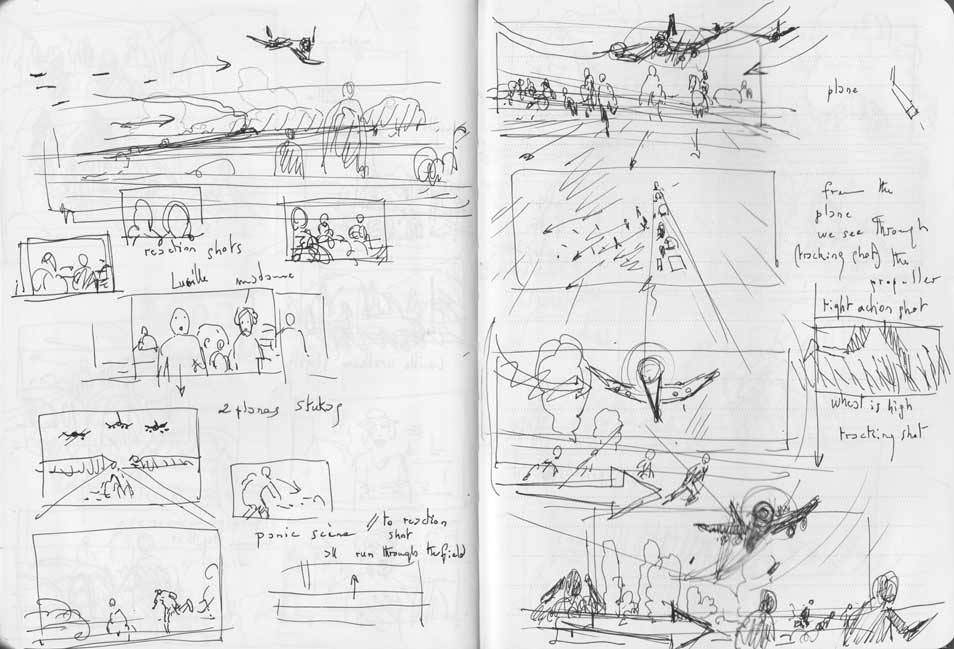 reaction shots
Lucille madame
2 planes stukas
panic scène // to reaction
shot
all run through the field
plane
from the
plane
we see through
(tracking shot) the
propeller
right action shot
wheat is high
tracking shot